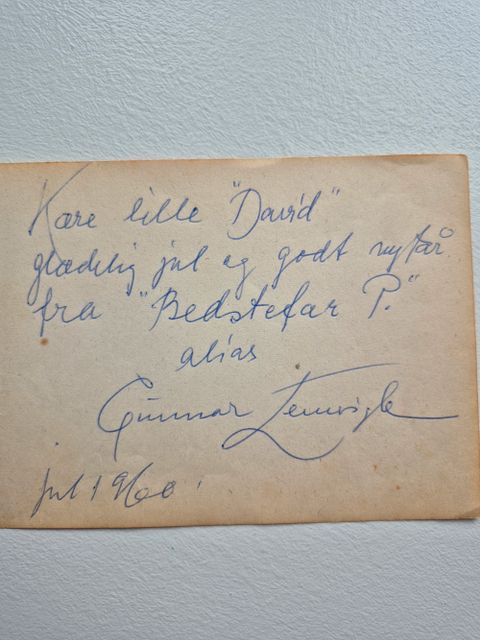 Kære lille "David"
glædelig jul og godt nytår
fra "Bedstefar P."
alias
Gunnar Lemvigh
jul 1960.